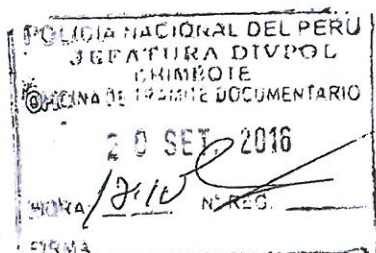 POLICIA NACIONAL DEL PERU
JEFATURA DIVPOL
CHIMBOTE
OFICINA DE TRAMITE DOCUMENTARIO
20 SET. 2016
HORA N° REG.
FIRMA